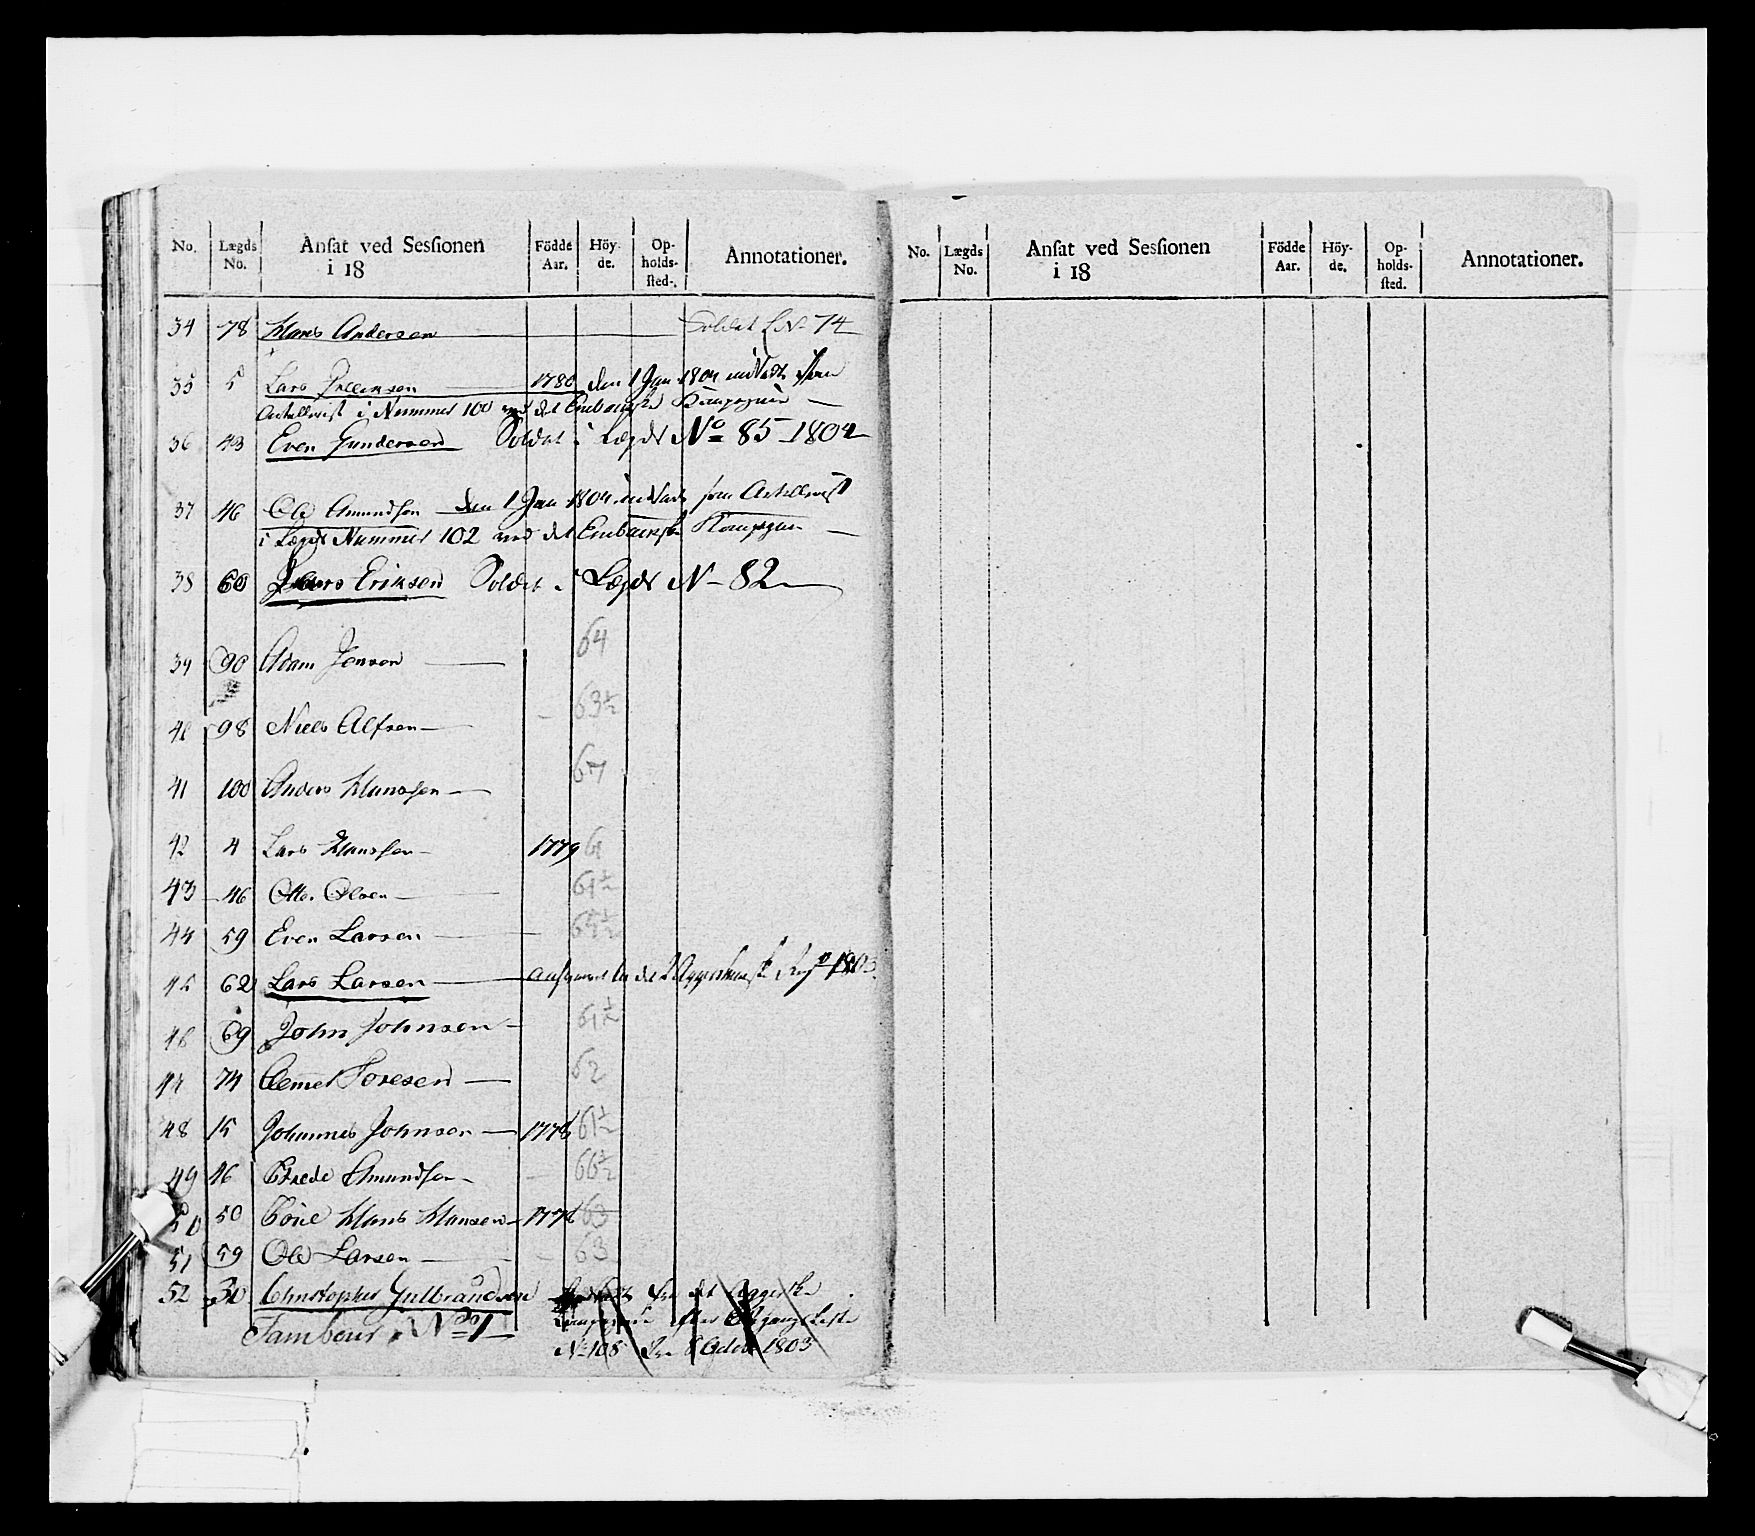 No. Lægds No. Ansat ved Sessionen i 18 Födde Aar. Höy-de. Op-holds-sted. Annotationer.
34 78 Hans Andersen Soldat L No 74
35 5 Lars 1780 den 1 Jan 1804 indsadt som
Artellerist i Nummer 100 ved det Kompagnie
36 43 Even Gundersen Soldat i Lægds No 85 1804
37 46 Ole Amundsen den 1 Jan 1804 indsadt som Artellerist
i Lægds Nummer 102 ved det Kompagnie
38 60 Lars Eriksen Soldat i Lægds No 82
39 90 Adam Jensen 64
40 98 Niels Alfsen 63½
41 100 Anders Hansen 67
42 4 Lars Hansen 1779 61
43 46 Otto Olsen 61½
44 59 Even Larsen
45 62 Lars Larsen 1803
46 69 John Johnsen 61½
47 74 Toresen 62
48 15 Johannes Johnsen 1778 61½
49 46 Brede Amundsen 66½
50 50 Hans Hansen 1778 63
51 59 Ole Larsen 63
52 30 Christopher Gulbrandsen det
Tambour No 1
No 108 1803
No. Lægds No. Ansat ved Sessionen i 18 Födde Aar. Höy-de. Op-holds-sted. Annotationer.